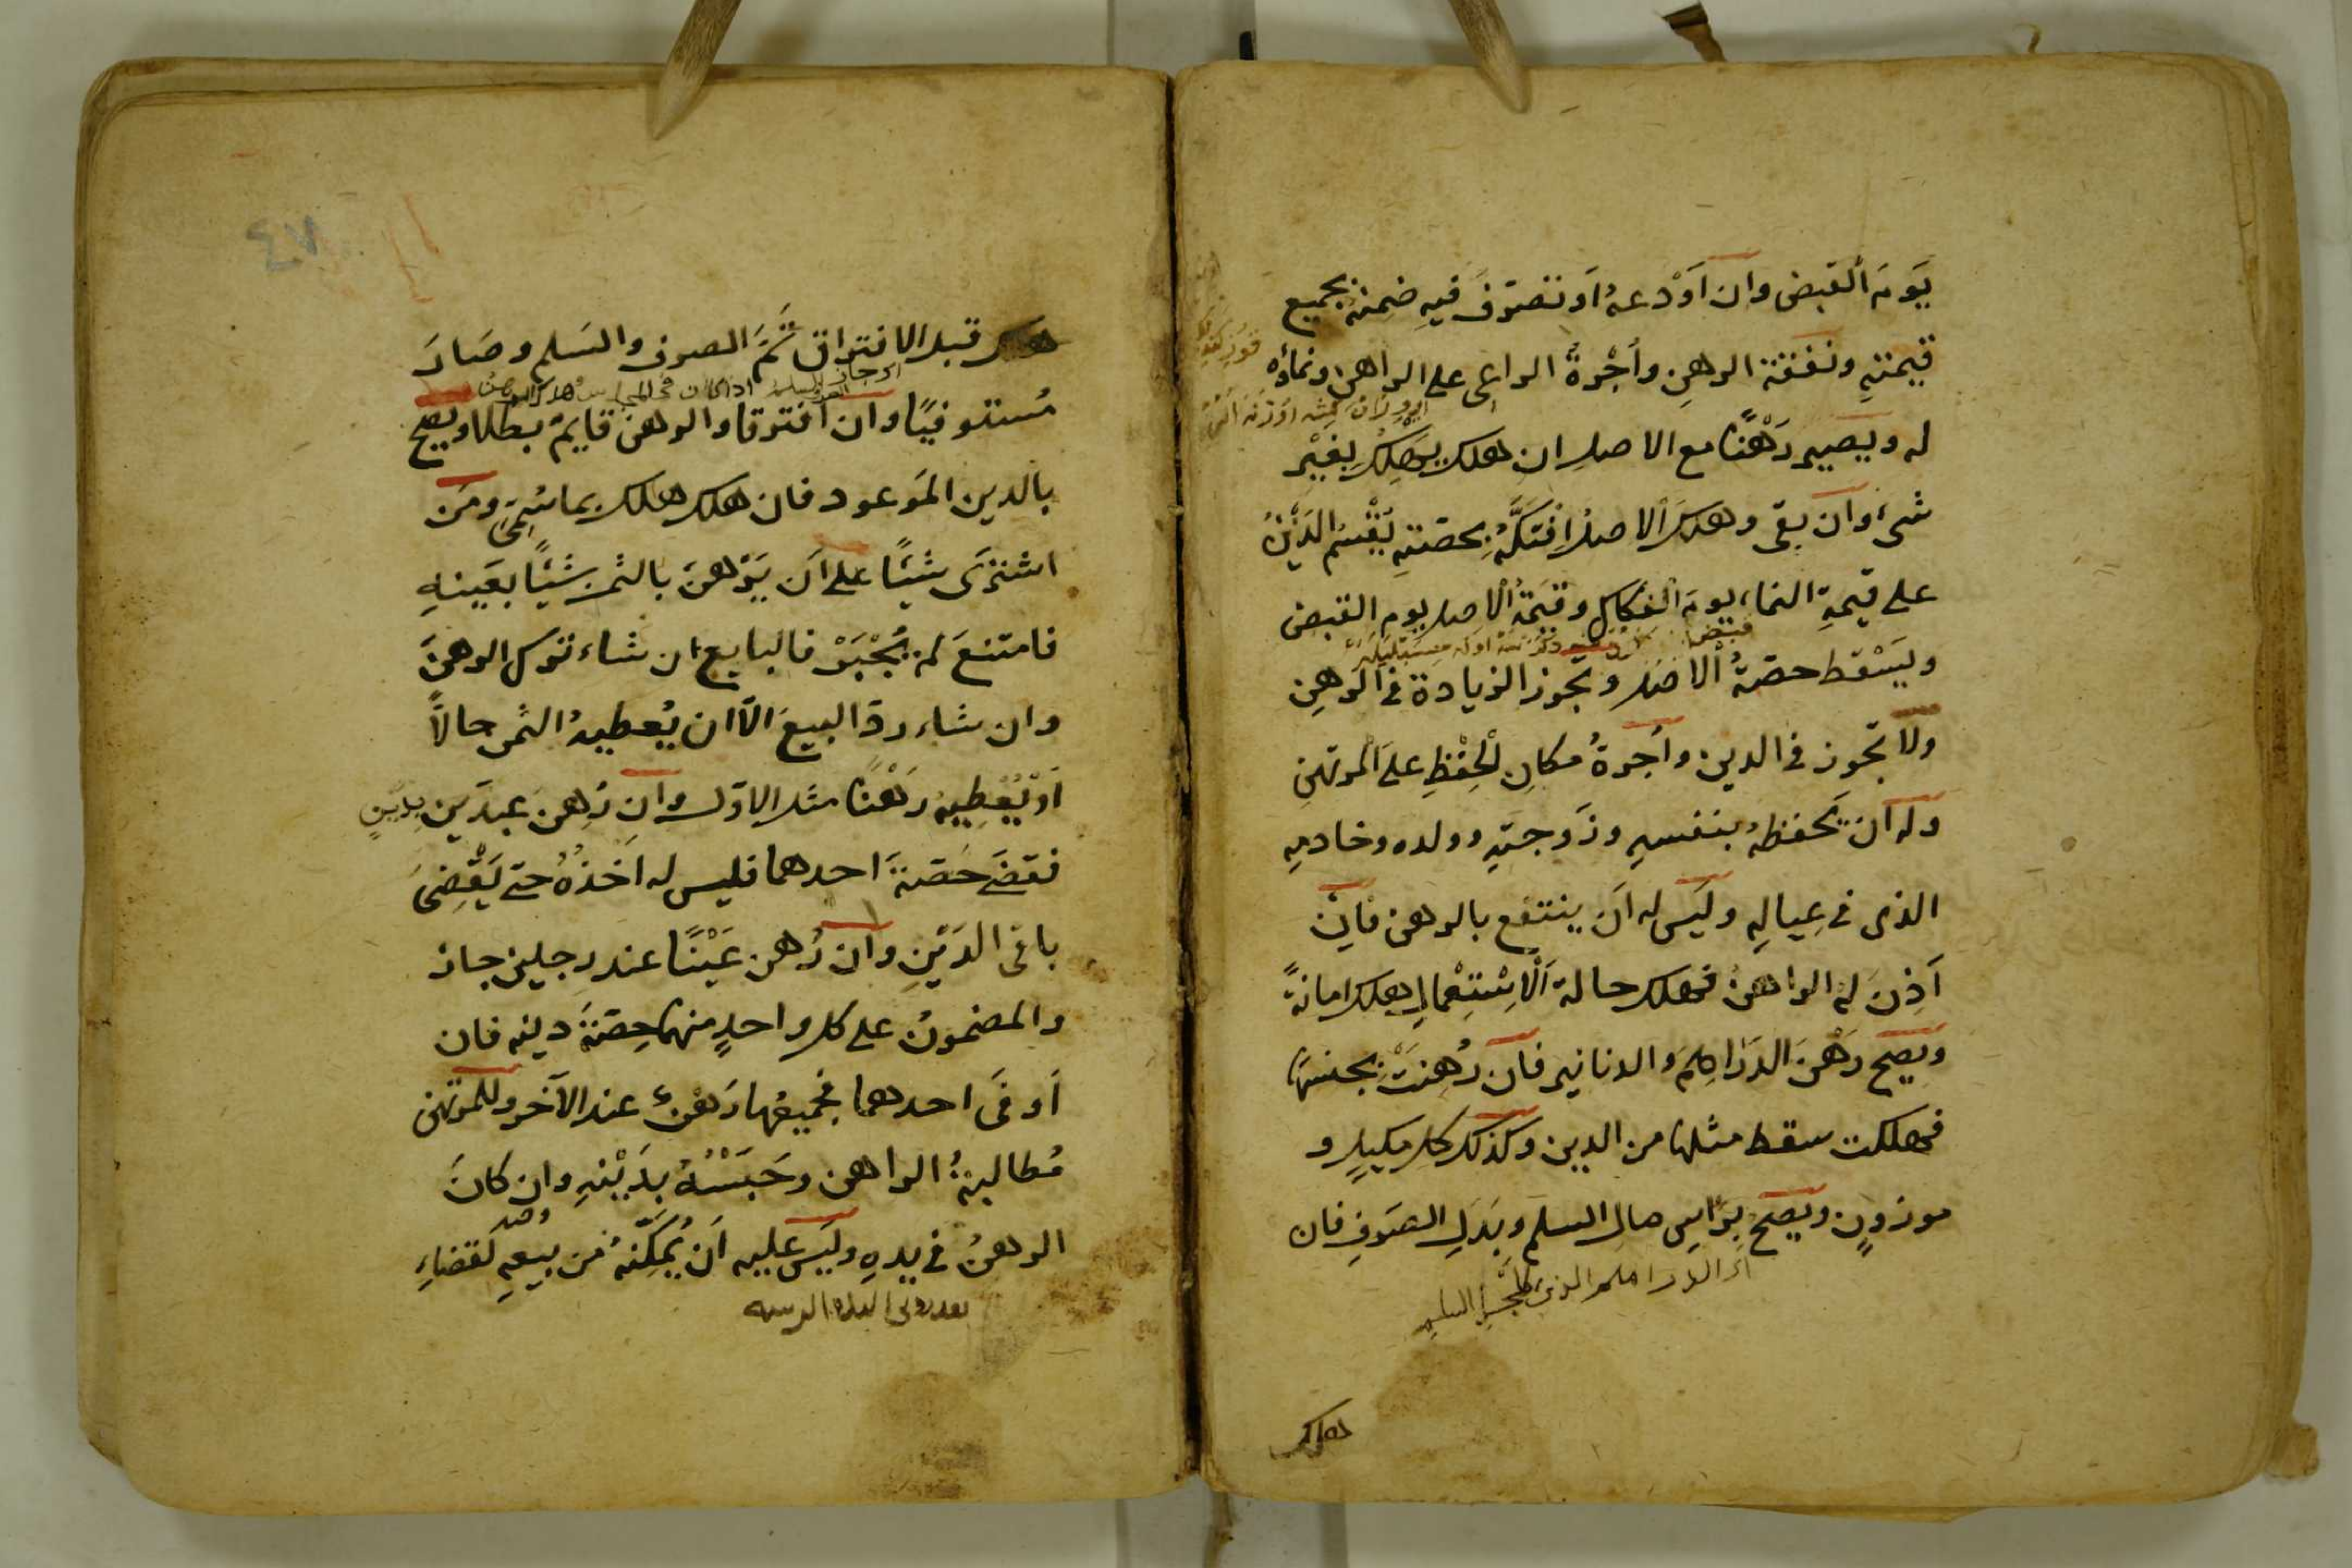 يَومَ القبض وان اَوْدعهُ اَو تصرّف فيهِ ضمنهُ بجميع
قيمتهِ ونفقة الرهنِ واُجْرةُ الراعى على الراهن ونماؤه
له ويصير رَهْنًا مع الاصل ان هلك يَهلِكُ بِغَيْر
شىء وان بقى وهلك الاصلُ افتكّهُ بحصّتهِ يُقْسَم الدَيْنُ
على قيمةِ النماء يومَ الفكاك وقيمة الاصل يوم القبض
ويَسْقط حصّةُ الاصْل ويجوز الزيادة فى الرهنِ
ولا تجوز فى الدين واُجرةُ مكانِ لْحِفْظِ على المرتهنِ
وله ان يحفظهُ بنفسهِ وزَوجتهِ وولده وخادمهِ
الذى فى عِيالِهِ وليَس له اَن ينتفع بالرهن فاِن
اَذِنَ له الراهنُ فهلك حالة الْاِسْتِعْمالِ هلك امانةً
ويصحّ رَهْنَ الدَرٰاهِمَ والدنانير فان رُهِنَتْ بجنسها
فهلكت سقط مثلها من الدين وكذلك كل مكيلٍ و
موزونٍ ويصحّ برَاسِ مال السلم وبَدَلِ الصَرفِ فان
هلك
هلك قبل الافتراق تَمَّ الصرف والسَلم وصَارَ
مُستوفيًا وان افترقا والرهن قايمٌ بطلا ويصحّ
بالدين المَوعود فان هلك هلك بما سُمّى ومَن
اشترَى شيئًا على اَن يَرْهنَ بالثمن شيئًا بعَينهِ
فامتنعَ لم يُجْبَرْ فالبايع ان شاء ترك الرهنَ
وان شاء ردّ البيعَ الّا ان يُعطيهُ الثمن حالاًّ
اَوْ يُعْطِيهُ رَهْنًا مثل الاوّل وان رُهِنَ عبدَين بدَيْنٍ
فقضَے حَصّةَ احدهما فليس له اَخذُهُ حتّى يَقْضِىَ
باقى الدَيْنِ وان رُهن عَيْنًا عند رجلين جاز
والمضمونُ على كل واحدٍ منهما حِصّةُ دينه فان
اَوفَى احدهما فجميعها رَهْنٌ عند الآخر وللمرتهن
مُطالبةُ الراهن وحَبَسْهُ بدَيْنهِ وان كانَ
الرهنُ فى يدهِ وليَس عليه اَن يُمكِّنهُ من بيعهِ لقضاءِ
٤٧